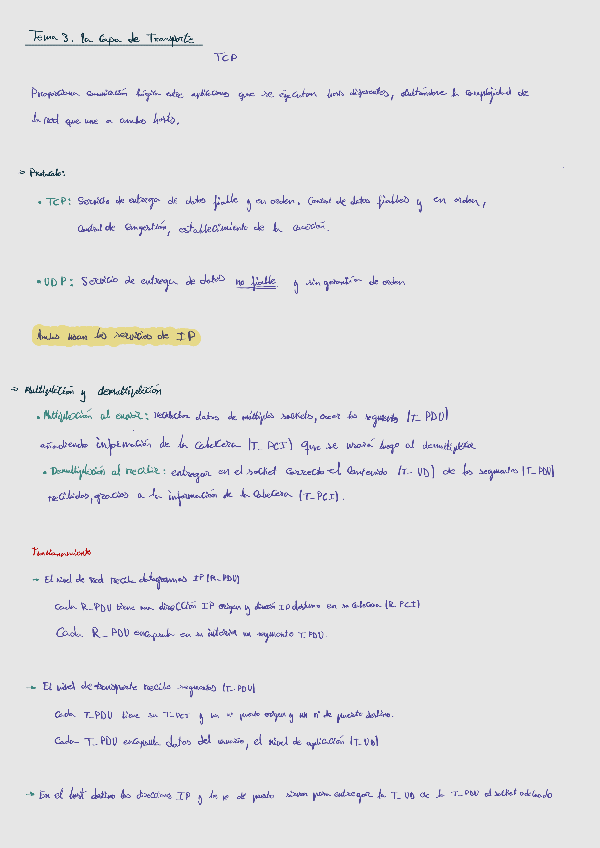 Tema 3. La Capa de Transporte
TCP
Proporciona comunicación lógica entre aplicaciones que se ejecutan hosts diferentes, ocultándose la complejidad de
la red que une a ambos hosts.
Protocolo:
• TCP: Servicio de entrega de datos fiable y en orden. Control de datos fiables y en orden,
control de congestión, establecimiento de la conexión.
• UDP: Servicio de entrega de datos no fiable y sin garantía de orden
Ambos usan los servicios de IP
Multiplexión y demultiplexión
• Multiplexión al enviar: recolectar datos de múltiples sockets, crear los segmentos (T_PDU)
añadiendo información de la cabecera (T_PCI) que se usará luego al demultiplexar
• Demultiplexión al recibir: entregar en el socket correcto el contenido (T_UD) de los segmentos (T_PDU)
recibidos, gracias a la información de la cabecera (T_PCI).
Funcionamiento
→ El nivel de red recibe datagramas IP (R_PDU)
Cada R_PDU tiene una dirección IP origen y dirección IP destino en su cabecera (R_PCI)
Cada R_PDU encapsula en su interior un segmento T_PDU.
→ El nivel de transporte recibe segmentos (T_PDU)
Cada T_PDU tiene su T_PCI y un nº puerto origen y un nº de puerto destino.
Cada T_PDU encapsula datos del usuario, el nivel de aplicación (T_UD)
→ En el host destino las direcciones IP y los nº de puerto sirven para entregar la T_UD de la T_PDU al socket adecuado